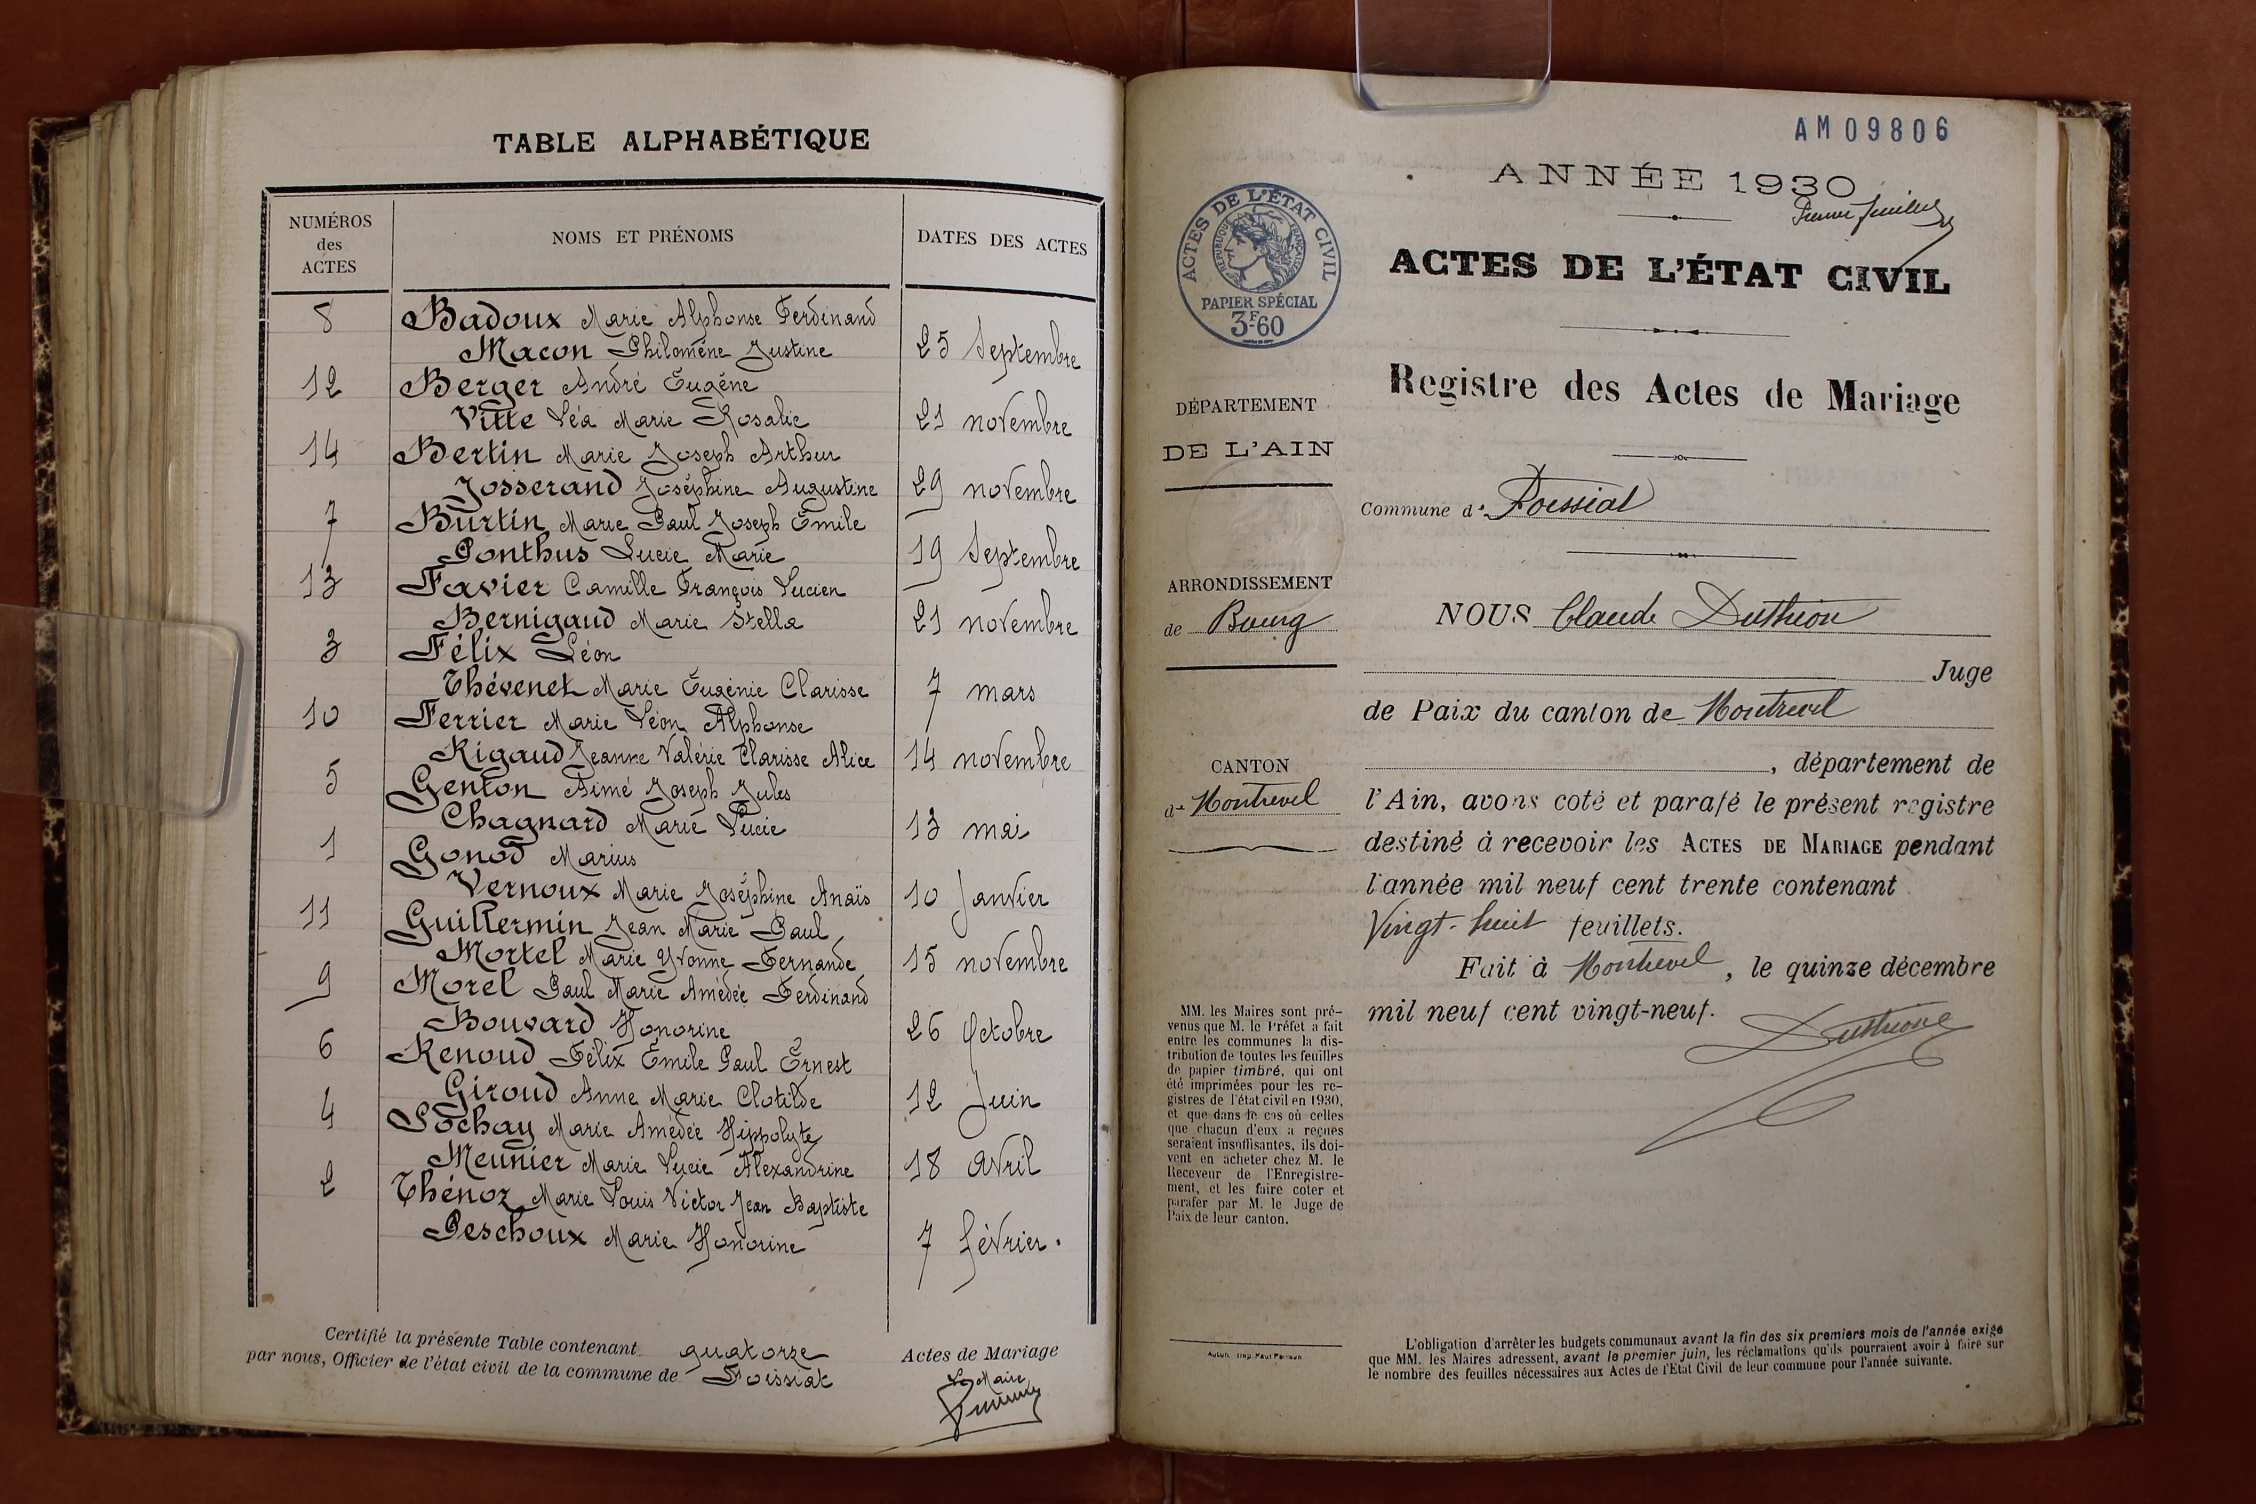 TABLE ALPHABÉTIQUE
NUMÉROS des ACTES
NOMS ET PRÉNOMS
DATES DES ACTES
8 Badoux Marie Alphonse Ferdinand
Macon Philomène Justine 25 Septembre
12 Berger André Eugène
Vitte Léa Marie Rosalie 21 novembre
14 Bertin Marie Joseph Arthur
Josserand Joséphine Augustine 29 novembre
7 Burtin Marie Paul Joseph Émile
Ponthus Lucie Marie 19 Septembre
13 Favier Camille François Lucien
Bernigaud Marie Stella 21 novembre
3 Félix Léon
Thévenet Marie Eugénie Clarisse 7 mars
10 Ferrier Marie Léon Alphonse
Rigaud Jeanne Valérie Clarisse Alice 14 novembre
5 Genton Aimé Joseph Jules
Chagnard Marie Lucie 13 mai
1 Gonod Marius
Vernoux Marie Joséphine Anaïs 10 Janvier
11 Guillermin Jean Marie Paul
Mortel Marie Yvonne Fernande 15 novembre
9 Morel Paul Marie Amédée Ferdinand
Bouvard Honorine 26 Octobre
6 Renoud Félix Émile Paul Ernest
Giroud Anne Marie Clotilde 12 Juin
4 Sochay Marie Amédée Hippolyte
Meunier Marie Lucie Alexandrine 18 avril
2 Thénoz Marie Louis Victor Jean Baptiste
Peschoux Marie Honorine 7 février.
Certifié la présente Table contenant quatorze Actes de Mariage
par nous, Officier de l'état civil de la commune de Foissiat
Le Maire
AM09806
ANNÉE 1930
ACTES DE L'ÉTAT CIVIL
RÉPUBLIQUE FRANÇAISE
PAPIER SPÉCIAL
3F60
ACTES DE L'ÉTAT CIVIL
Registre des Actes de Mariage
DÉPARTEMENT
DE L'AIN
Commune de Foissiat
ARRONDISSEMENT
de Bourg
NOUS Claude Duthion
Juge
de Paix du canton de Montrevel
, département de
CANTON
de Montrevel
l'Ain, avons coté et parafé le présent registre
destiné à recevoir les ACTES DE MARIAGE pendant
l'année mil neuf cent trente contenant
Vingt-huit feuillets.
Fait à Montrevel, le quinze décembre
mil neuf cent vingt-neuf.
Duthion
MM. les Maires sont pré-
venus que M. le Préfet a fait
entre les communes la dis-
tribution de toutes les feuilles
de papier timbré, qui ont
été imprimées pour les re-
gistres de l'état civil en 1930,
et que dans le cas où celles
que chacun d'eux a reçues
seraient insuffisantes, ils doi-
vent en acheter chez M. le
Receveur de l'Enregistre-
ment, et les faire coter et
parafer par M. le Juge de
Paix de leur canton.
Autun. Imp. Paul Pernan
L'obligation d'arrêter les budgets communaux avant la fin des six premiers mois de l'année exige
que MM. les Maires adressent, avant le premier juin, les réclamations qu'ils pourraient avoir à faire sur
le nombre des feuilles nécessaires aux Actes de l'Etat Civil de leur commune pour l'année suivante.